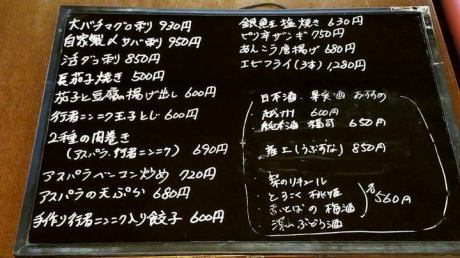 大バチマグロ刺 930円
自家製〆サバ刺 950円
活ダコ刺 850円
長茄子焼き 500円
茄子と豆腐の揚げ出し 600円
行者ニンニク玉子とじ 600円
2種の肉巻き
(アスパラ、行者ニンニク) 690円
アスパラベーコン炒め 720円
アスパラの天ぷら 680円
手作り行者ニンニク入り餃子 600円
銀鮭塩焼き 630円
ピリ辛ザンギ 750円
あんこう唐揚げ 680円
エビフライ(3本) 1,280円
日本酒・果実酒
600円
650円
産土(うぶすな) 850円
・梨のリキュール
・とろこく桃姫
の梅酒
・深山ぶどう酒
各560円